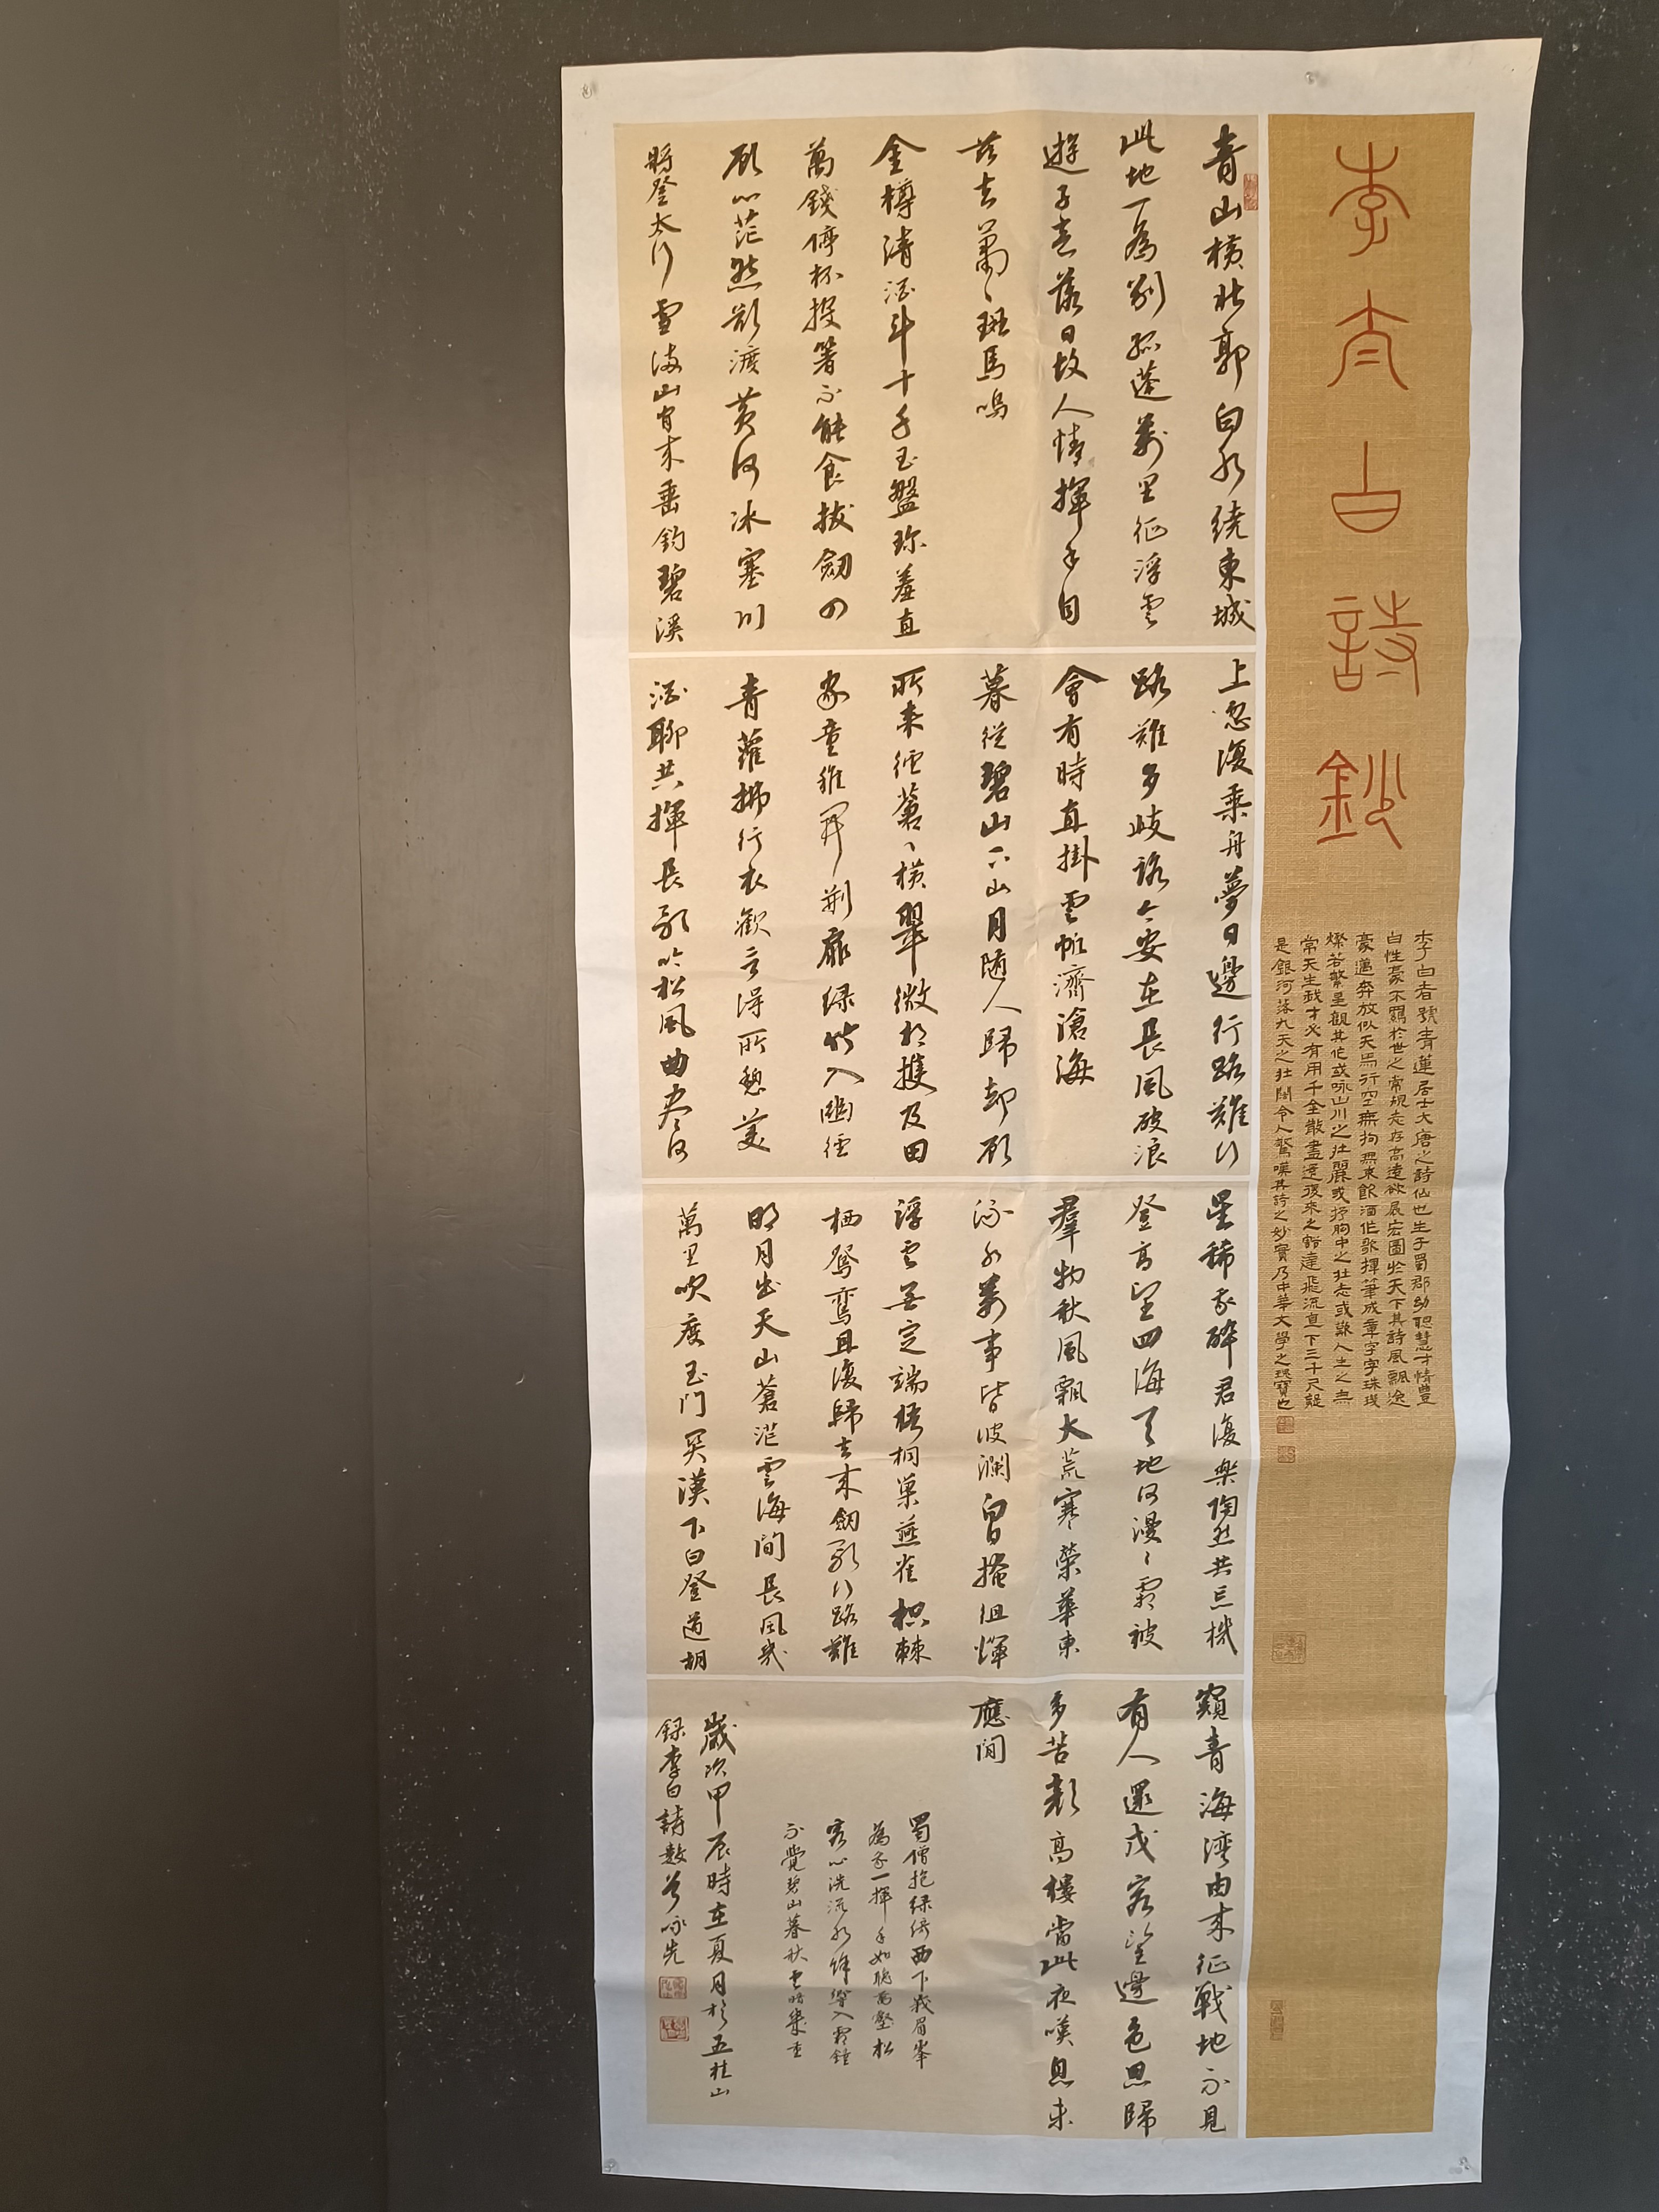 李太白詩鈔
李白者號青蓮居士大唐之詩仙也生于蜀郡幼聰慧才情豊
白性豪不羈於世之常規志存高遠欲展宏圖於天下其詩風飄逸
豪邁奔放似天馬行空無拘無束飲酒作歌揮筆成章字字珠璣
燦若繁星觀其作或咏山川之壯麗或抒胸中之壯志或歎人生之無
常天生我才必有用千金散盡還復來之豁達飛流直下三千尺疑
是銀河落九天之壯闊令人驚嘆其詩之妙實乃中華文學之瑰寶也
青山橫北郭白水繞東城
此地一為別孤蓬萬里征浮雲
遊子意落日故人情揮手自
茲去蕭〻班馬鳴
金樽清酒斗十千玉盤珎羞直
萬錢停杯投箸不能食拔劍四
顧心茫然欲渡黃河冰塞川
將登太行雪滿山閒來垂釣碧溪
上忽復乘舟夢日邊行路難行
路難多歧路今安在長風破浪
會有時直掛雲帆濟滄海
暮從碧山下山月隨人歸却顧
所來徑蒼〻橫翠微相攜及田
家童稚開荊扉綠竹入幽徑
青蘿拂行衣歡言得所憩美
酒聊共揮長歌吟松風曲盡河
星稀我醉君復樂陶然共忘機
登高望四海天地何漫〻霜被
羣物秋風飄大荒寒榮華東
流水萬事皆波瀾白日掩徂輝
浮雲無定端梧桐巢燕雀枳棘
栖鴛鸞且復歸去來劍歌行路難
明月出天山蒼茫雲海間長風幾
萬里吹度玉門關漢下白登道胡
窺青海灣由來征戰地不見
有人還戍客望邊色思歸
多苦顏高樓當此夜嘆息未
應閒
蜀僧抱綠綺西下峨眉峯
為我一揮手如聽萬壑松
客心洗流水餘響入霜鐘
不覺碧山暮秋雲暗幾重
歲次甲辰時在夏月於五桂山
錄李白詩數首咏先